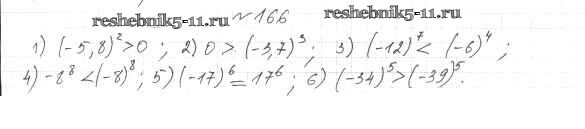 reshebnik5-11.ru №166 reshebnik5-11.ru
1) (-5,8)² > 0 ; 2) 0 > (-3,7)³ ; 3) (-12)⁷ < (-6)⁴ ;
4) -8⁸ < (-8)⁸ ; 5) (-17)⁶ = 17⁶ ; 6) (-34)⁵ > (-39)⁵.